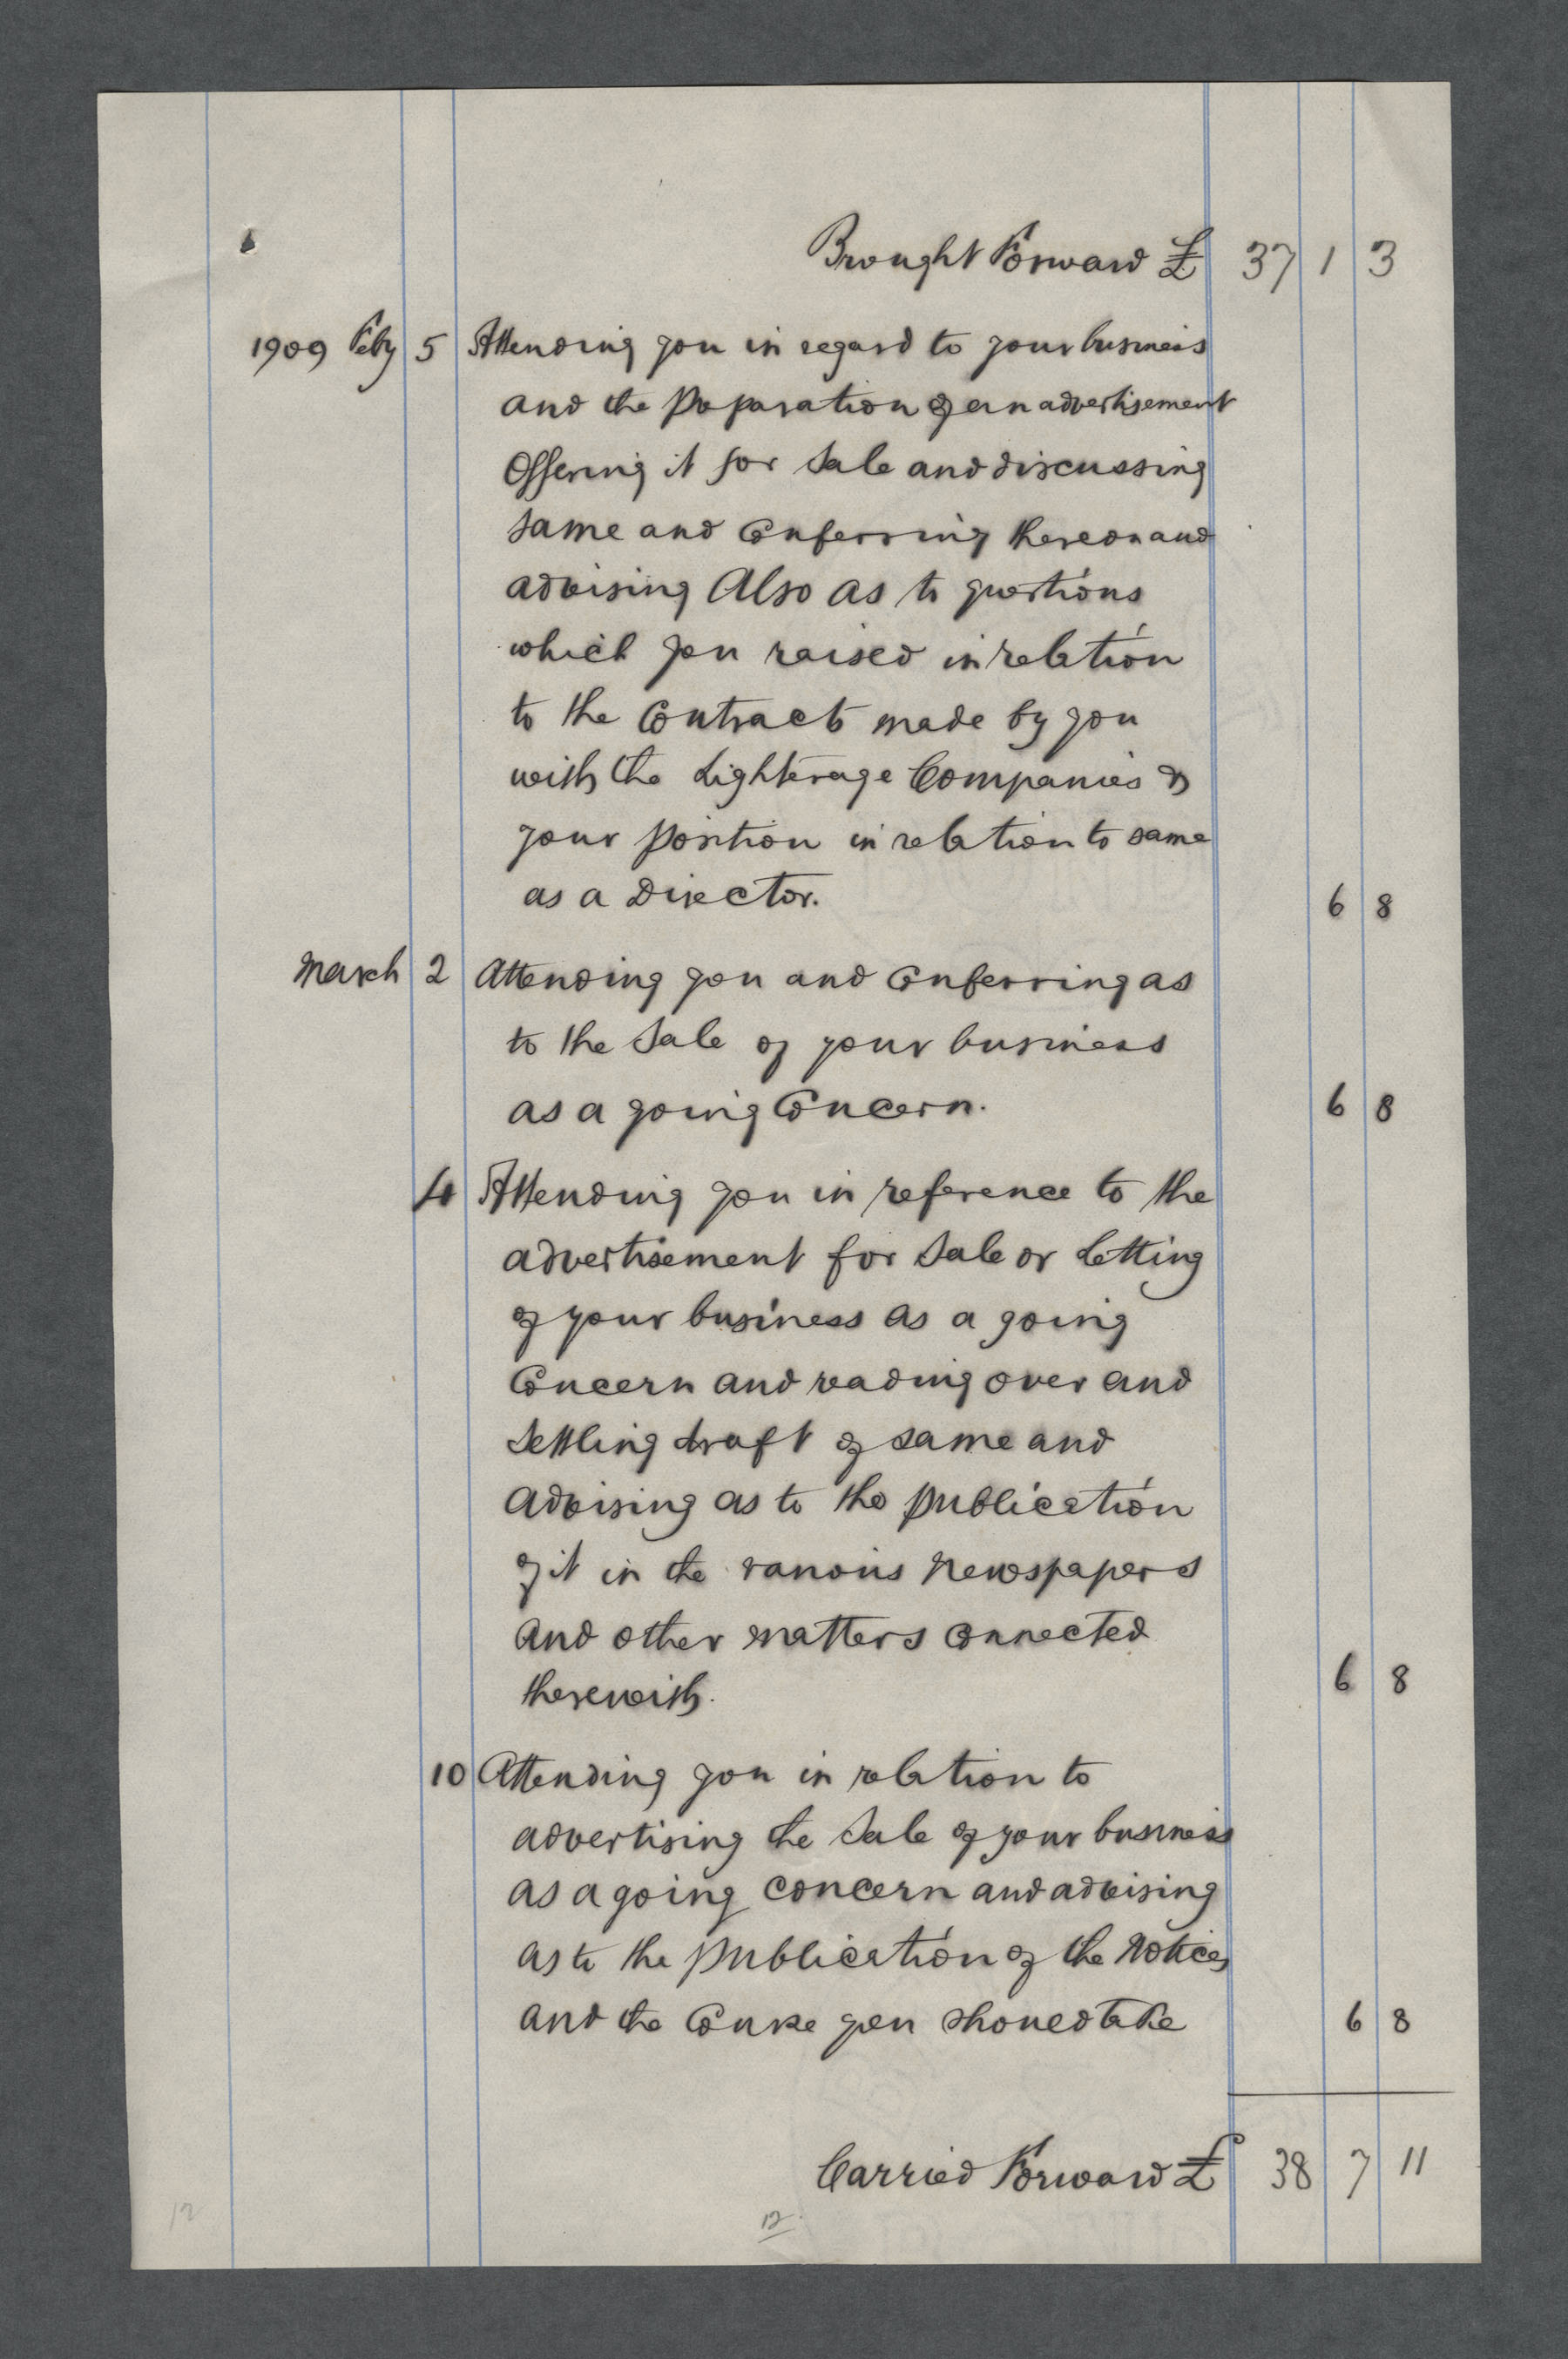 Brought Forward £ 37 1 3
1909 Feby 5 Attending you in regard to your business
and the Preparation of an advertisement
Offering it for Sale and discussing
Same and Conferring thereon and
advising Also as to questions
which you raised in relation
to the Contracts made by you
with the Lighterage Companies &
your Position in relation to same
as a Director. 6 8
March 2 Attending you and Conferring as
to the Sale of your business
as a going Concern. 6 8
4 Attending you in reference to the
advertisement for Sale or Letting
of your business as a going
Concern and reading over and
Settling draft of same and
Advising as to the Publication
of it in the various Newspapers
and other matters Connected
therewith. 6 8
10 Attending you in relation to
advertising the Sale of your business
as a going concern and advising
as to the Publication of the Notices
and the Course you should take 6 8
Carried Forward £ 38 7 11
12 12